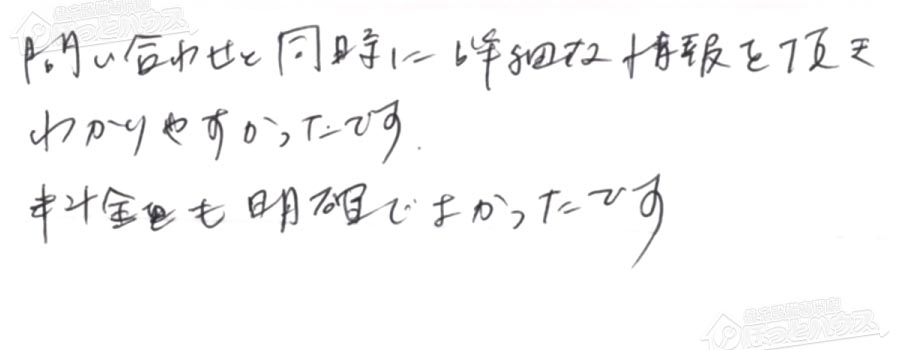 問い合わせと同時に詳細な情報を頂き
わかりやすかったです.
料金も明確でよかったです
ほっとハウス
ほっとハウス